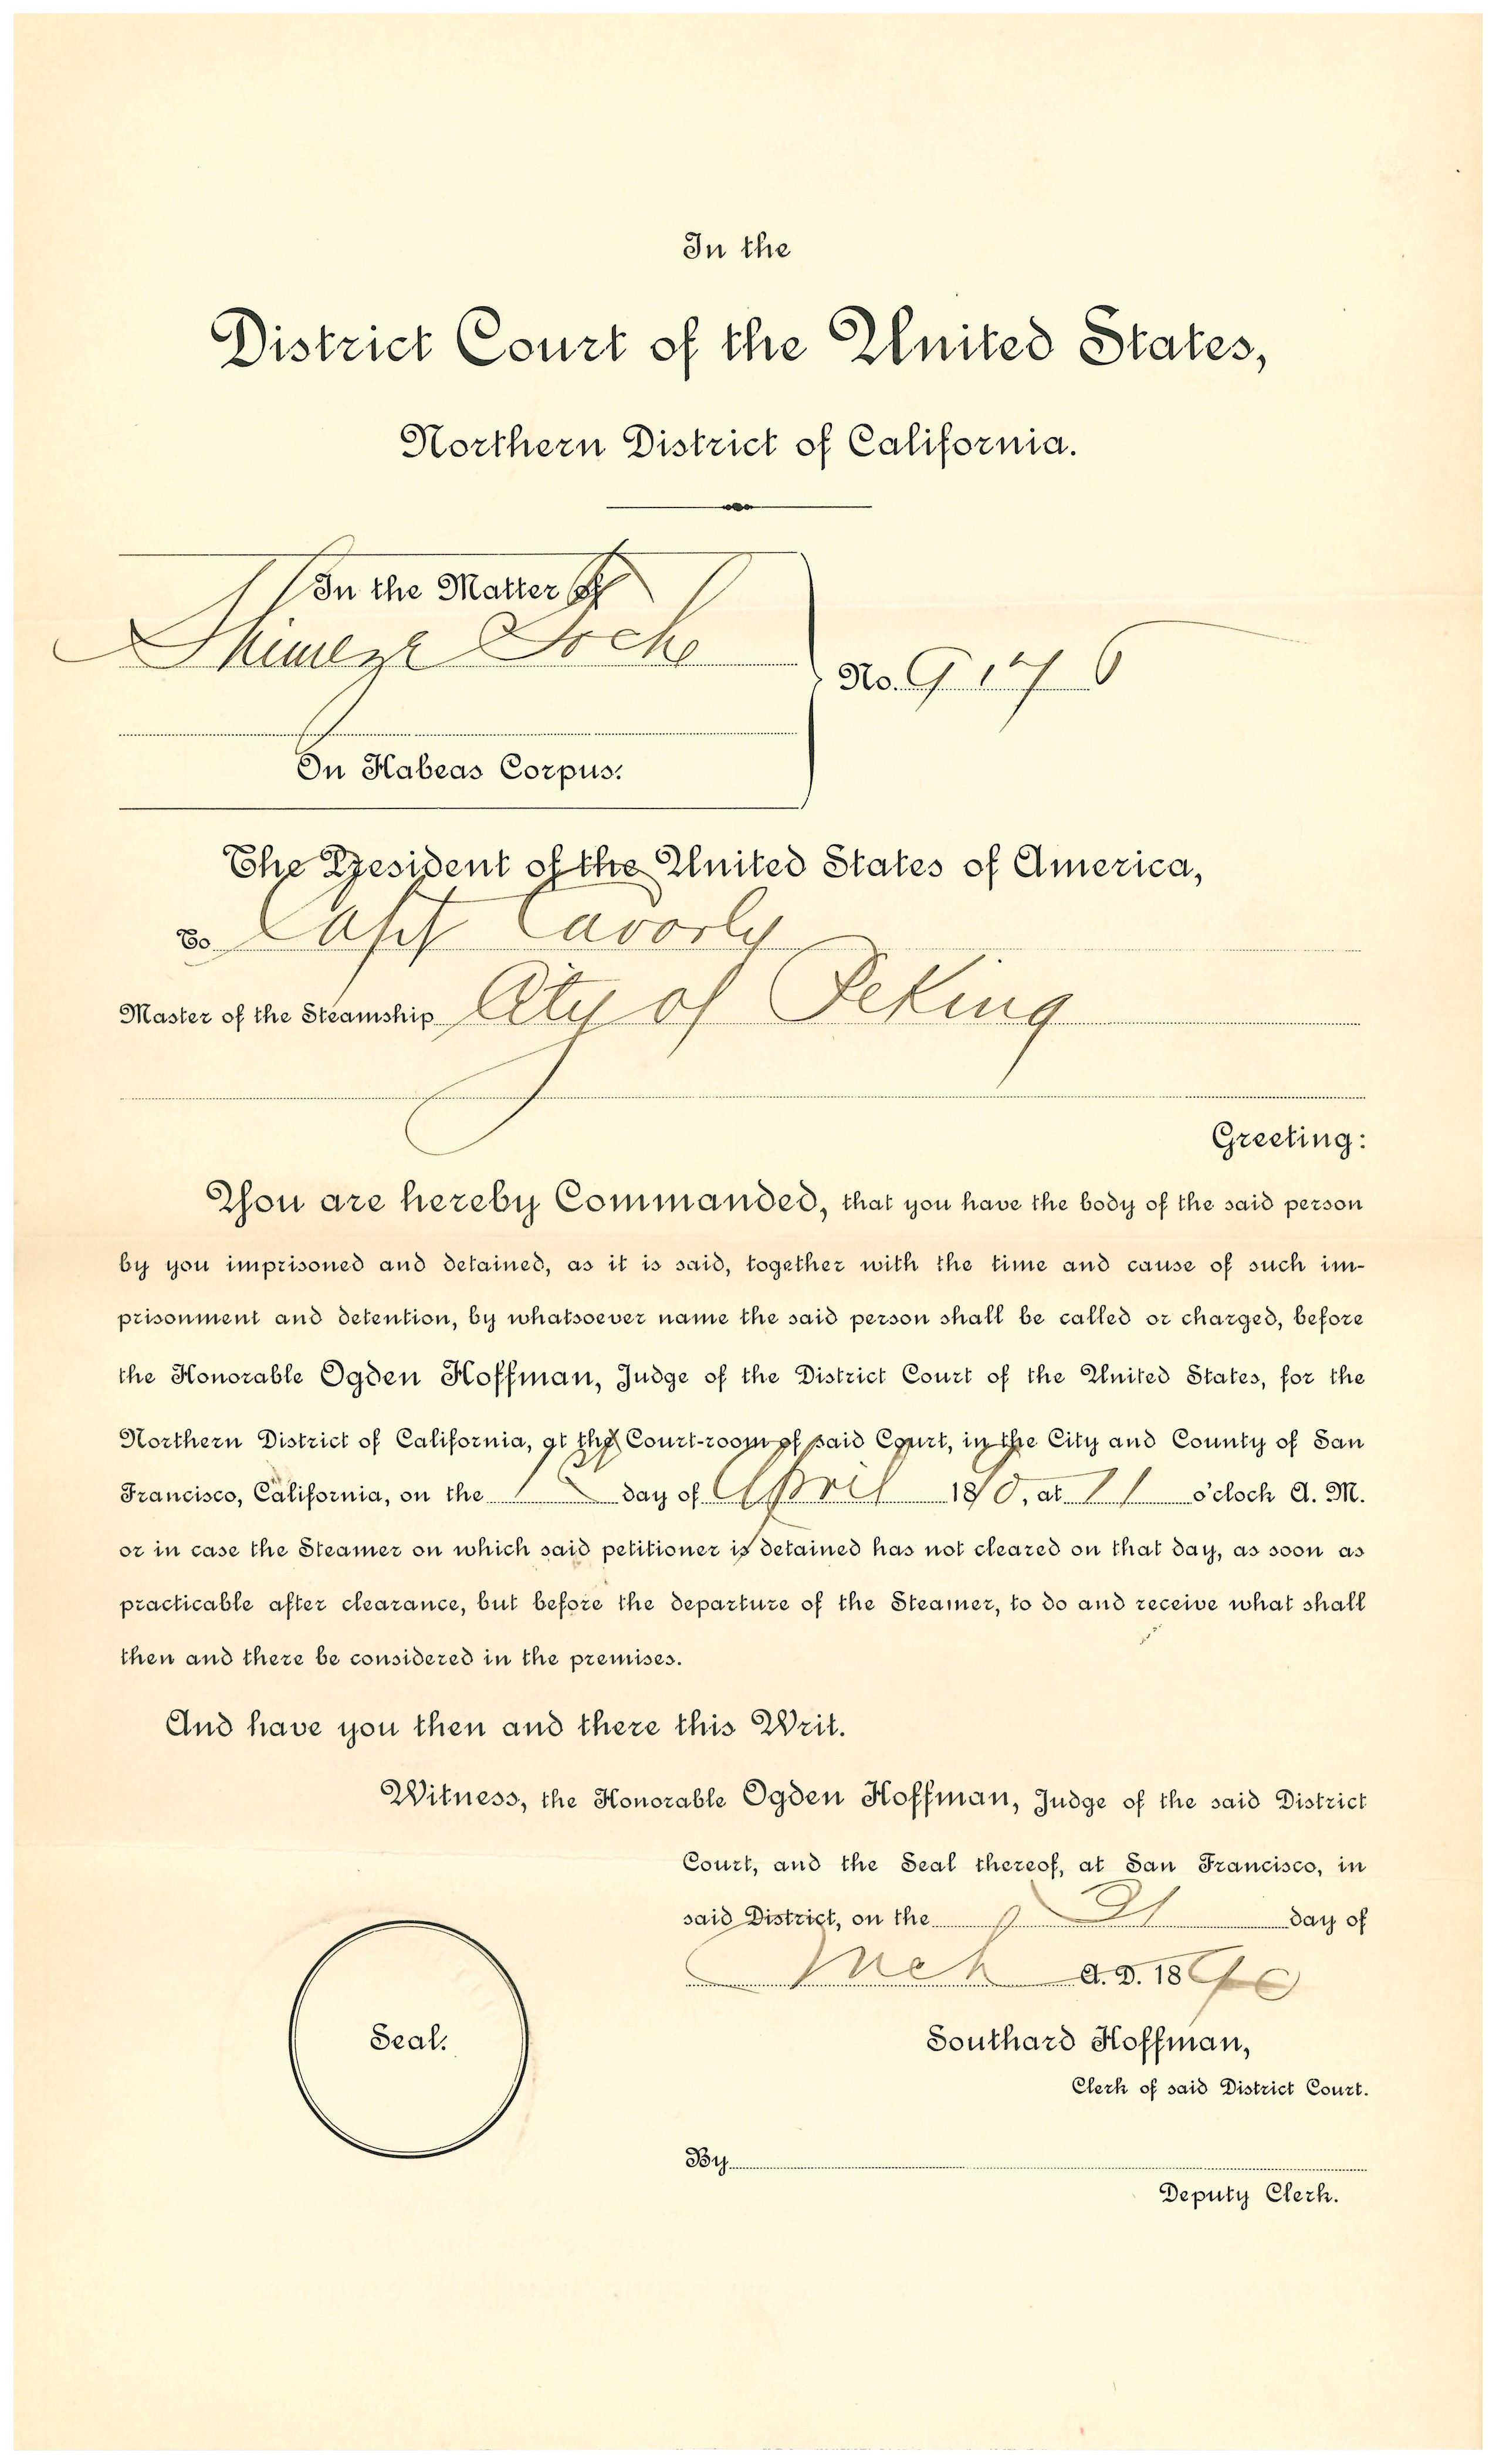 In the
District Court of the United States,
Northern District of California.
In the Matter of
On Habeas Corpus.
No. 9176
The President of the United States of America,
To Capt Cavarly
Master of the Steamship City of Peking
Greeting:
You are hereby Commanded, that you have the body of the said person
by you imprisoned and detained, as it is said, together with the time and cause of such im-
prisonment and detention, by whatsoever name the said person shall be called or charged, before
the Honorable Ogden Hoffman, Judge of the District Court of the United States, for the
Northern District of California, at the Court-room of said Court, in the City and County of San
Francisco, California, on the 1st day of April 1890, at 11 o'clock A. M.
or in case the Steamer on which said petitioner is detained has not cleared on that day, as soon as
practicable after clearance, but before the departure of the Steamer, to do and receive what shall
then and there be considered in the premises.
And have you then and there this Writ.
Witness, the Honorable Ogden Hoffman, Judge of the said District
Court, and the Seal thereof, at San Francisco, in
said District, on the 31 day of
Mch A. D. 1890
Seal.
Southard Hoffman,
Clerk of said District Court.
By
Deputy Clerk.